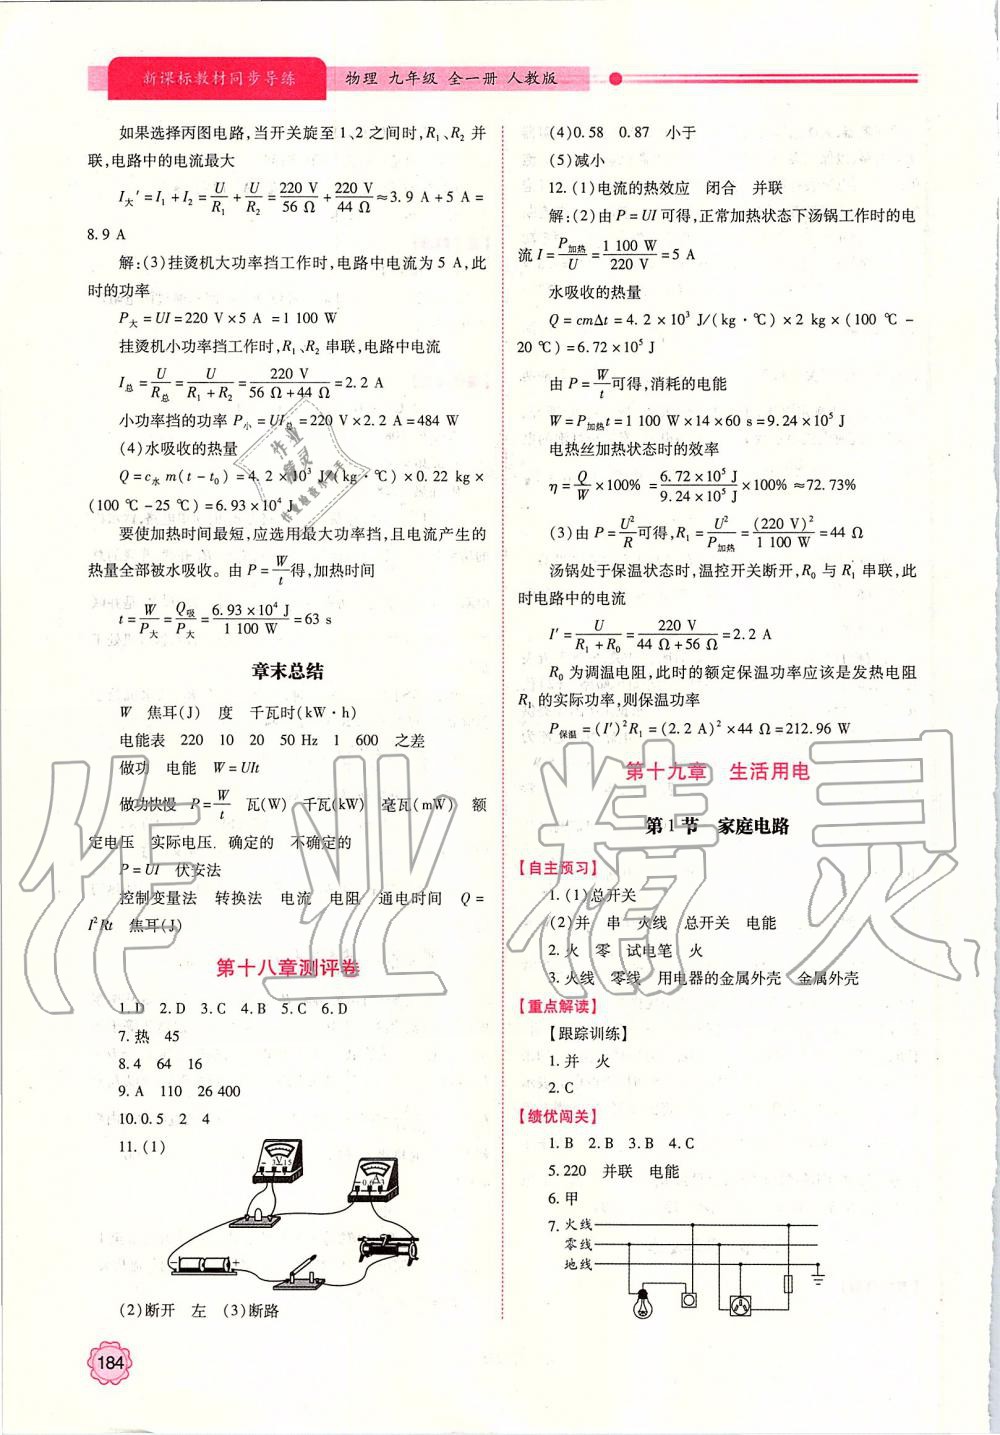 新课标教材同步导练
物理 九年级 全一册 人教版
如果选择丙图电路,当开关旋至1、2之间时,R₁、R₂并
联,电路中的电流最大
I大′=I₁+I₂=U/R₁+U/R₂=220 V/56 Ω+220 V/44 Ω≈3.9 A+5 A=
8.9 A
解:(3)挂烫机大功率挡工作时,电路中电流为5 A,此
时的功率
P大=UI=220 V×5 A =1 100 W
挂烫机小功率挡工作时,R₁、R₂串联,电路中电流
I总=U/R总=U/(R₁+R₂)=220 V/(56 Ω+44 Ω)=2.2 A
小功率挡的功率P小=UI总=220 V×2.2 A=484 W
(4)水吸收的热量
Q=c水 m(t-t₀)=4.2×10³ J/(kg·℃)×0.22 kg×
(100 ℃-25 ℃)=6.93×10⁴ J
要使加热时间最短,应选用最大功率挡,且电流产生的
热量全部被水吸收。由P=W/t得,加热时间
t=W/P大=Q吸/P大=6.93×10⁴ J/1 100 W=63 s
章末总结
W 焦耳(J) 度 千瓦时(kW·h)
电能表 220 10 20 50 Hz 1 600 之差
做功 电能 W=UIt
做功快慢 P=W/t 瓦(W) 千瓦(kW) 毫瓦(mW) 额
定电压 实际电压 确定的 不确定的
P=UI 伏安法
控制变量法 转换法 电流 电阻 通电时间 Q=
I²Rt 焦耳(J)
第十八章测评卷
1.D 2.D 3.C 4.B 5.C 6.D
7.热 45
8.4 64 16
9.A 110 26 400
10.0.5 2 4
11.(1)
(2)断开 左 (3)断路
184
(4)0.58 0.87 小于
(5)减小
12.(1)电流的热效应 闭合 并联
解:(2)由P=UI可得,正常加热状态下汤锅工作时的电
流I=P加热/U=1 100 W/220 V=5 A
水吸收的热量
Q=cmΔt=4.2×10³ J/(kg·℃)×2 kg×(100 ℃-
20 ℃)=6.72×10⁵ J
由P=W/t可得,消耗的电能
W=P加热t=1 100 W×14×60 s=9.24×10⁵ J
电热丝加热状态时的效率
η=Q/W×100% =6.72×10⁵ J/9.24×10⁵ J×100% ≈72.73%
(3)由P=U²/R可得,R₁=U²/P加热=(220 V)²/1 100 W=44 Ω
汤锅处于保温状态时,温控开关断开,R₀与R₁串联,此
时电路中的电流
I′=U/(R₁+R₀)=220 V/(44 Ω+56 Ω)=2.2 A
R₀为调温电阻,此时的额定保温功率应该是发热电阻
R₁的实际功率,则保温功率
P保温=(I′)²R₁=(2.2 A)²×44 Ω=212.96 W
第十九章 生活用电
第1节 家庭电路
【自主预习】
1.(1)总开关
(2)并 串 火线 总开关 电能
2.火 零 试电笔 火
3.火线 零线 用电器的金属外壳 金属外壳
【重点解读】
【跟踪训练】
1.并 火
2.C
【绩优闯关】
1.B 2.B 3.B 4.C
5.220 并联 电能
6.甲
7.火线
零线
地线
作业精灵